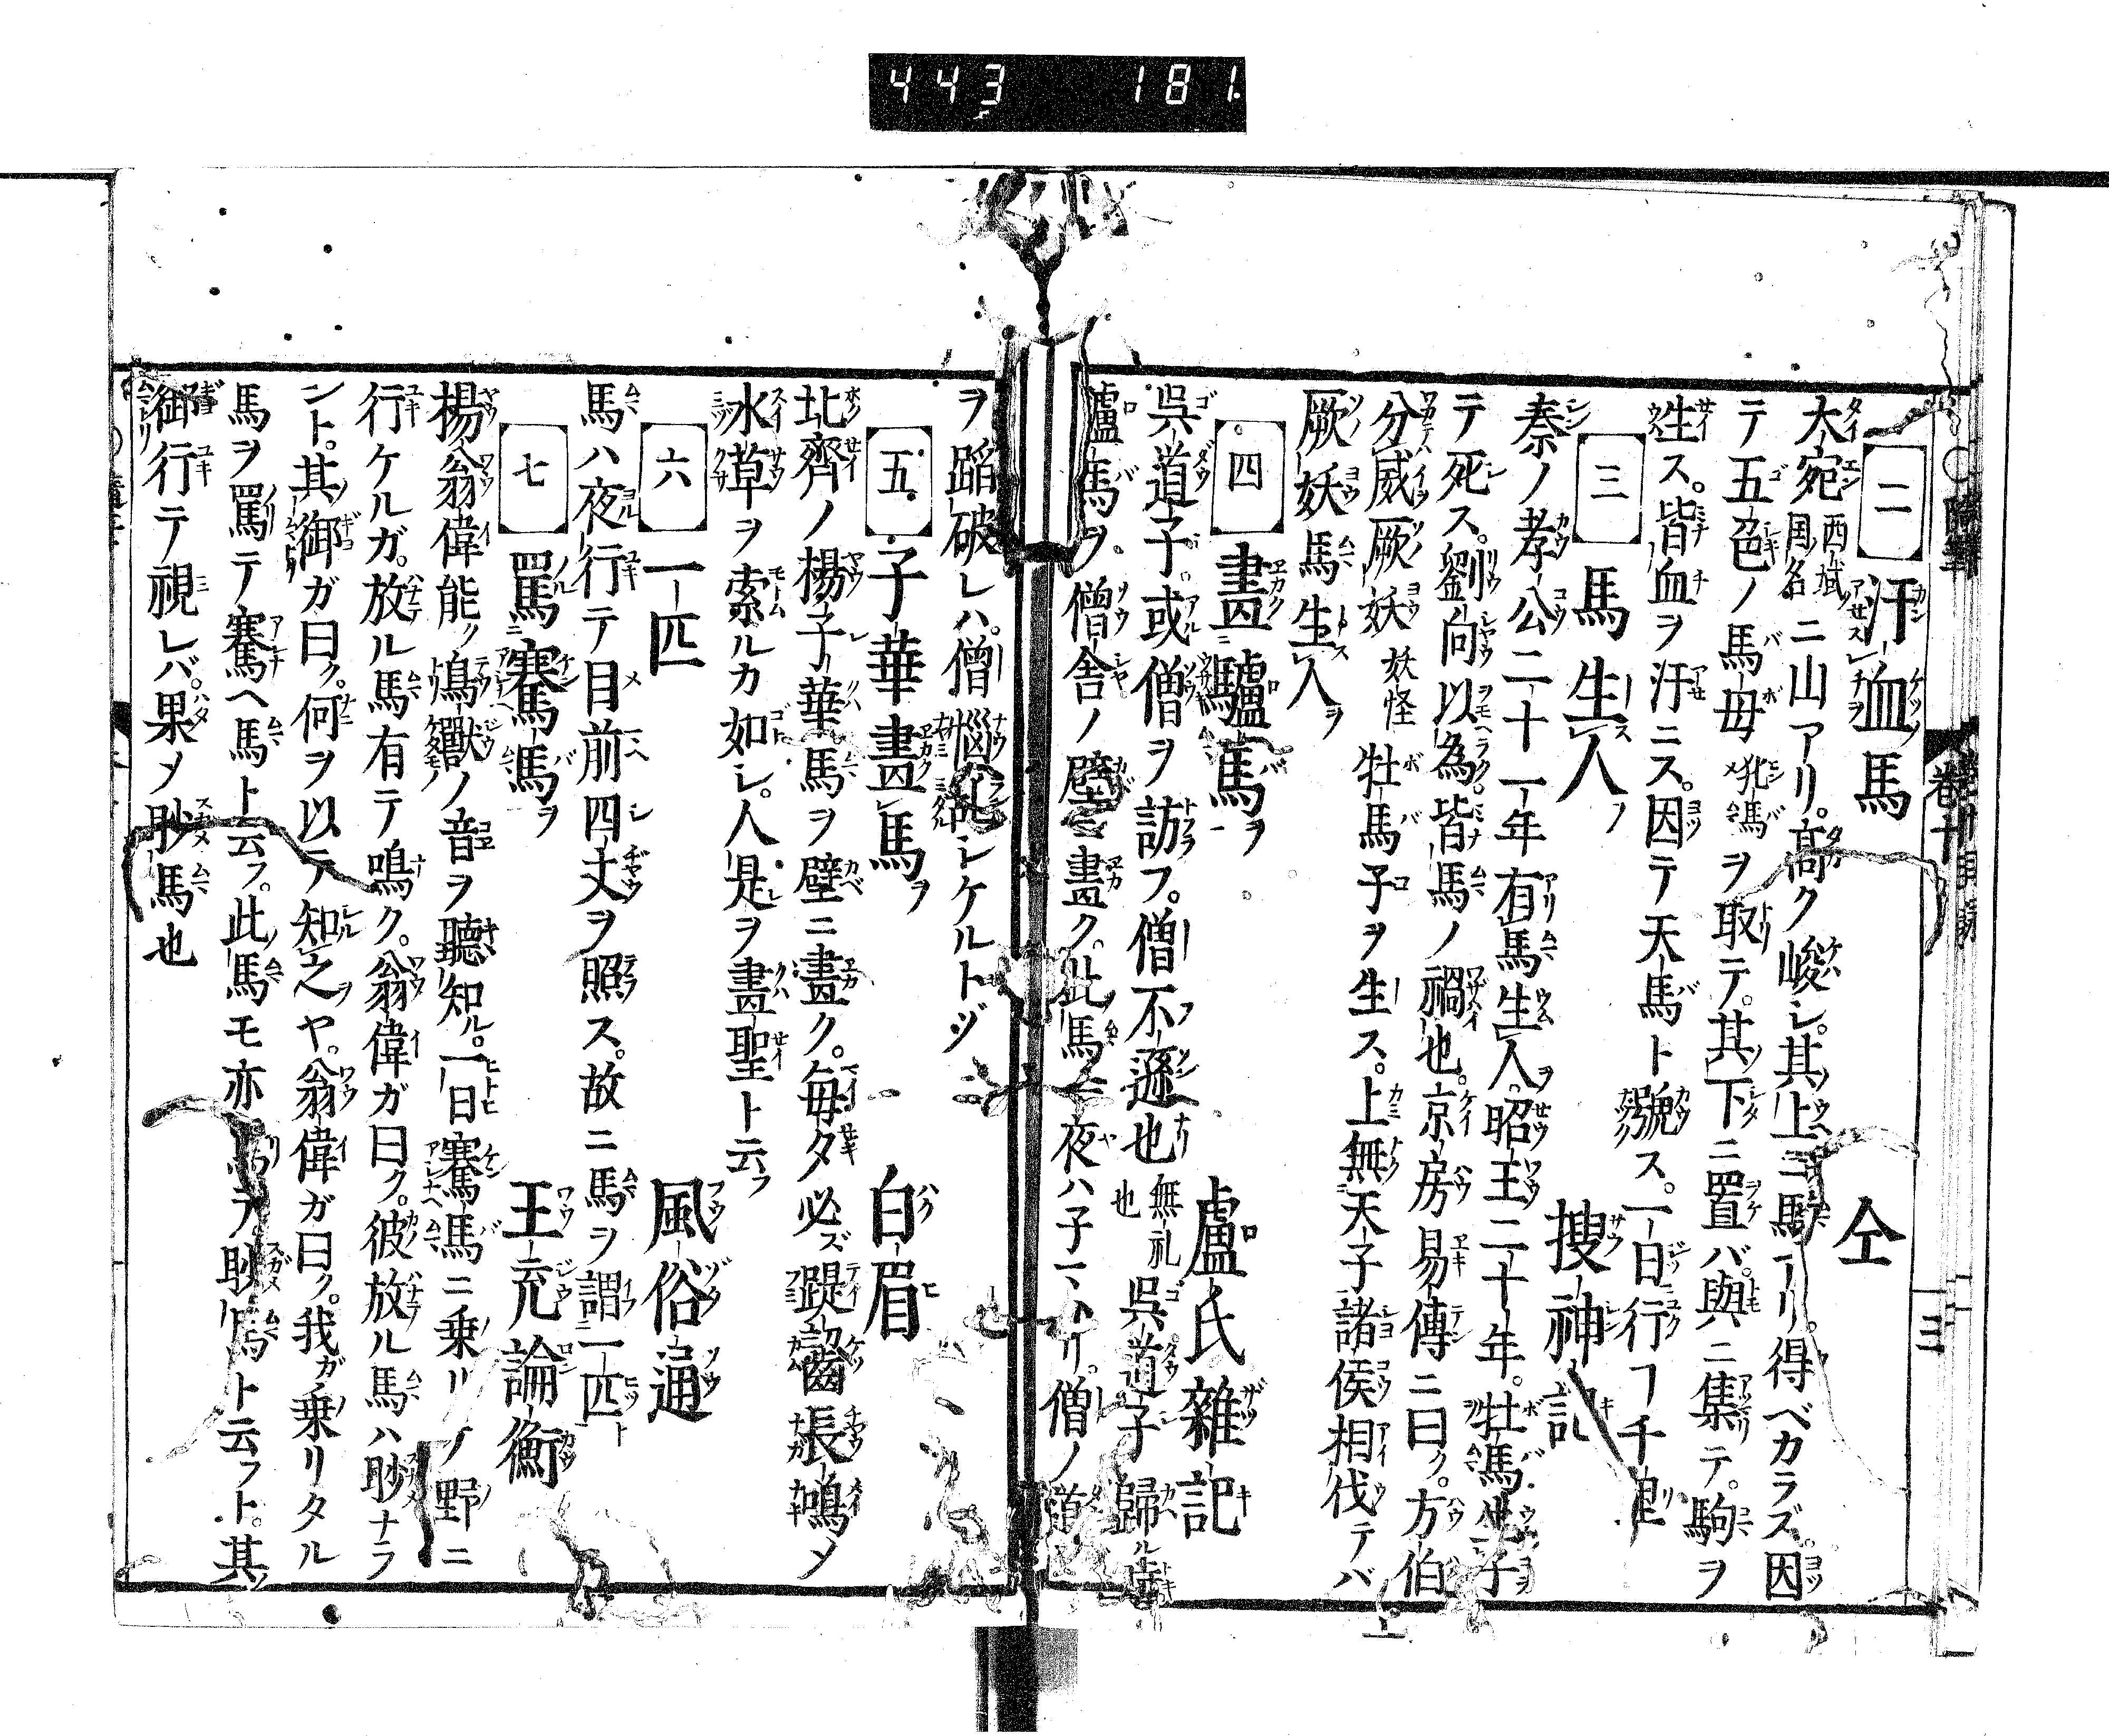 443 181.
二 汗血馬 仝
大宛西域国ノ名ニ山アリ。髙ク峻シ。其ノ上ニ馬アリ。得ベカラズ。因
テ五色ノ馬母牝馬ヲ取テ。其ノ下ニ置バ。與ニ集テ。駒ヲ
生ス。皆血ヲ汗ニス。因テ天馬ト號ス。一日行フ千里
三 馬生人 搜神記
秦ノ孝公二十一年有馬生人。昭王二十年。牡馬生子
テ死ス。劉向以為。皆馬ノ禍也。京房易傳ニ曰ク。方伯
分威厥妖妖怪牡馬子ヲ生ス。上無天子諸侯相伐テバ
厥妖馬生人ヲ
四 畫驢馬ヲ 盧氏雜記
呉道子。或僧ヲ訪フ。僧不遜也無礼也呉道子歸ル時
驢馬ヲ。僧舎ノ壁ニ畫ク。此ノ馬夜ハ子マトリ。僧ノ道
ヲ蹈破レハ。僧惱乱シケルトゾ
五 子華畫馬ヲ 白眉
北齊ノ楊子華馬ヲ壁ニ畫ク。毎夕必ズ蹄齧長鳴メ
水草ヲ索ルカ如シ。人是ヲ畫聖ト云フ
六 一匹 風俗通
馬ハ夜行テ目前四丈ヲ照ス。故ニ馬ヲ謂一匹ト
七 罵蹇馬ヲ 王充論衡
楊翁偉能ノ鳥獸ノ音ヲ聴知ル。一日蹇馬ニ乗リノ野ニ
行ケルガ。放ル馬有テ鳴ク。翁偉ガ曰ク。彼放ル馬ハ眇ナラ
ント。其御ガ曰ク。何ヲ以テ知之ヤ。翁偉ガ曰ク。我ガ乗リタル
馬ヲ罵テ蹇ヘ馬ト云フ。此ノ馬モ亦罵テ眇馬ト云フト。其ノ
御行テ視レバ。果メ眇馬也
巻十
三